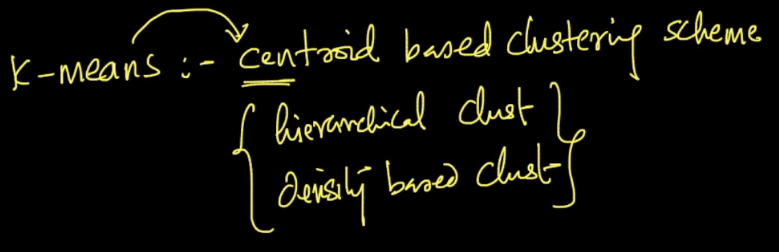 K-means :- centroid based clustering scheme
{ hierarchical clust }
{ density based clust }